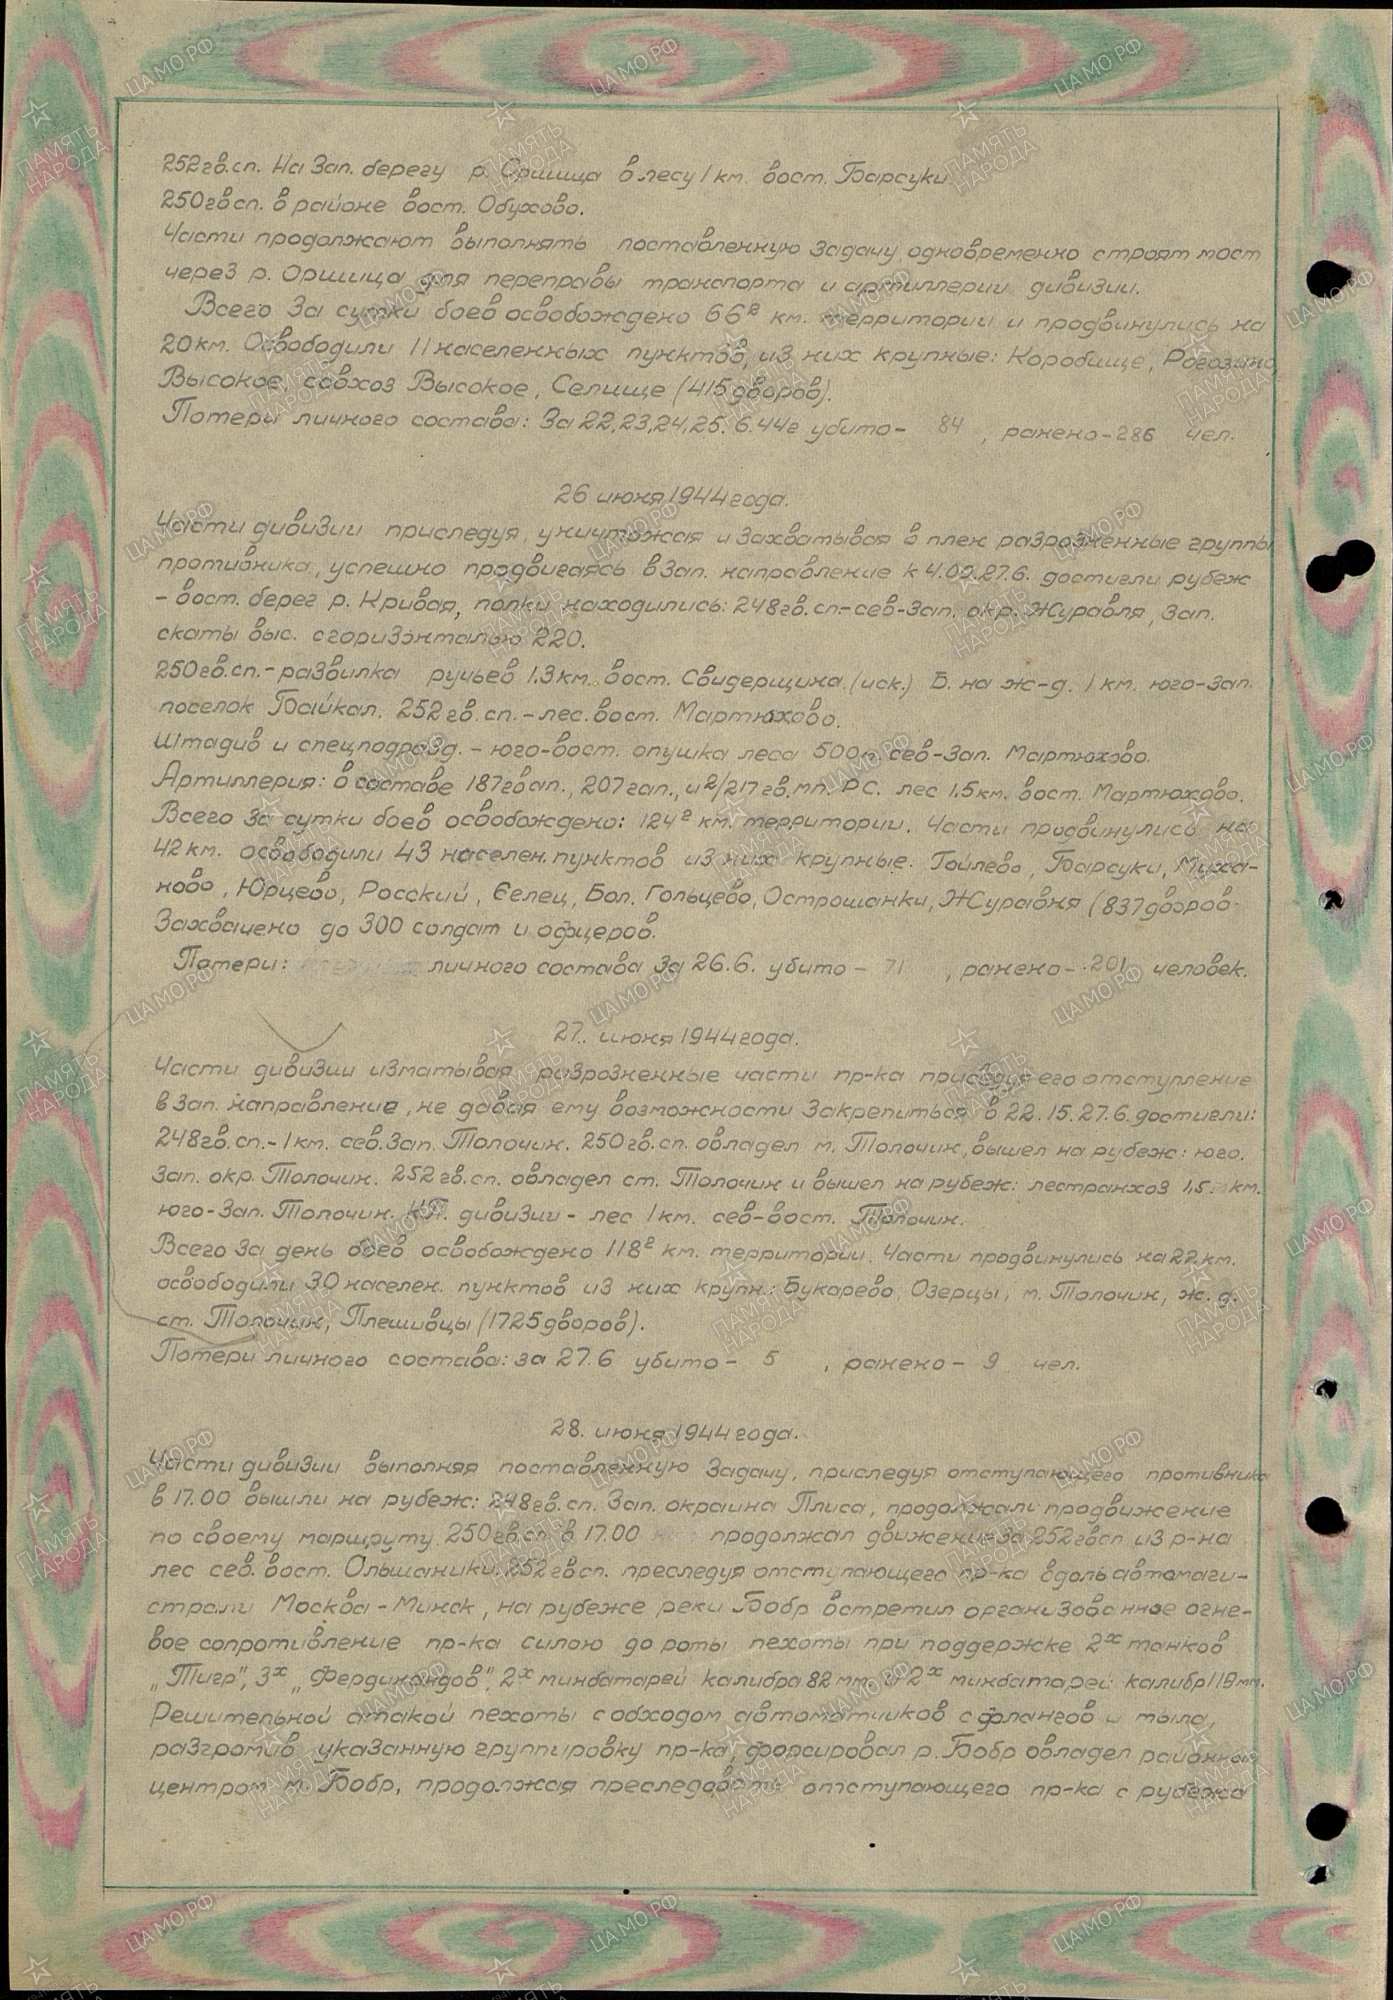 252гв.сп. На Зап. берегу р. Оршица в лесу 1 км. вост. Барсуки.
250гвсп. в районе вост. Обухово.
Части продолжают выполнять поставленную задачу, одновременно строят мост
через р. Оршица для переправы транспорта и артиллерии дивизии.
Всего за сутки боев освобождено 66² км. территории и продвинулись на
20 км. Освободили 11 населенных пунктов, из них крупные: Коробище, Рогозино,
Высокое, совхоз Высокое, Селище (415 дворов).
Потери личного состава: За 22,23,24,25. 6.44г убито - 84 , ранено - 286 чел.
26 июня 1944 года.
Части дивизии приследуя, уничтожая и захватывая в плен разрозненные группы
противника, успешно продвигаясь в зап. направление к 4.00.27.6. достигли рубеж
- вост. берег р. Кривая, полки находились: 248гв.сп.- сев-зап. окр. Журавля, зап.
скаты выс. с горизонталью 220.
250гв.сп.- развилка ручьев 1,3 км. вост. Свидерщина (иск.) Б. на ж-д. 1 км. юго-зап.
поселок Байкал. 252 гв. сп. - лес. вост. Мартюхово.
Штадив и спецподразд. - юго-вост. опушка леса 500 м. сев-зап. Мартюхово.
Артиллерия: в составе 187гв ап., 207 гап., и 2/217 гв. мп. Р.С. лес 1,5 км. вост. Мартюхово.
Всего за сутки боев освобождено: 124² км. территории. Части продвинулись на
42 км. освободили 43 населен. пунктов из них крупные: Гойлево, Барсуки, Муха-
ново, Юрцево, Росский, Селец, Бол. Гольцево, Острошанки, Журавня (837 дворов.
Захвачено до 300 солдат и офицеров.
Потери: личного состава за 26.6. убито - 71 , ранено - 201 человек.
27. июня 1944 года.
Части дивизии изматывая разрозненные части пр-ка приследуя его отступление
в зап. направление, не давая ему возможности закрепиться в 22.15.27.6. достигли:
248гв.сп.- 1 км. сев. зап. Толочин. 250 гв. сп. овладел м. Толочин, вышел на рубеж: юго.
зап. окр. Толочин. 252 гв. сп. овладел ст. Толочин и вышел на рубеж: лестранхоз 1,5. км.
юго-зап. Толочин. КП. дивизии - лес 1 км. сев-вост. Толочин.
Всего за день боев освобождено 118² км. территории. Части продвинулись на 22 км.
освободили 30 населен. пунктов из них крупн.: Букарево, Озерцы, м. Толочин, ж. д.
ст. Толочин, Плешивцы (1725 дворов).
Потери личного состава: за 27. 6 убито - 5 , ранено - 9 чел.
28. июня 1944 года.
Части дивизии выполняя поставленную задачу, приследуя отступающего противника
в 17.00 вышли на рубеж: 248гв.сп. Зап. окраина Плиса, продолжали продвижение
по своему маршруту. 250гв.сп. в 17.00 продолжал движение за 252гвсп из р-на
лес сев. вост. Ольшаники. 252гвсп. преследуя отступающего пр-ка вдоль автомаги-
страли Москва - Минск, на рубеже реки Бобр встретил организованное огне-
вое сопротивление пр-ка силою до роты пехоты при поддержке 2ˣ танков
„Тигр", 3ˣ „Фердинандов", 2ˣ минбатарей калибра 82 мм. и 2ˣ минбатарей калибр 119 мм.
Решительной атакой пехоты с обходом автоматчиков с флангов и тыла,
разгромив указанную группировку пр-ка, форсировал р. Бобр овладел районным
центром м. Бобр, продолжая преследовать отступающего пр-ка с рубежа
ПАМЯТЬ НАРОДА
ЦАМО.РФ